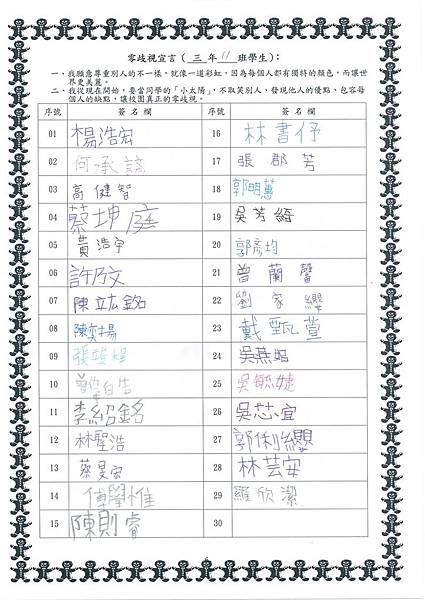 零歧視宣言（三年11班學生）：
一、我願意尊重別人的不一樣，就像一道彩虹，因為每個人都有獨特的顏色，而讓世
界更美麗。
二、我從現在開始，要當同學的「小太陽」，不取笑別人、發現他人的優點、包容每
個人的缺點，讓校園真正的零歧視。
序號 簽名欄 序號 簽名欄
01 楊浩宏 16 林書伃
02 何承諺 17 張郡芳
03 高健智 18 郭明蕙
04 蔡坤庭 19 吳芳縉
05 黃浩宇 20 郭彥均
06 許乃文 21 曾蘭馨
07 陳竑銘 22 劉家纓
08 陳奕揚 23 戴甄萱
09 張 24 吳燕
10 25 吳毓婕
11 李紹銘 26 吳芯宜
12 林聖浩 27 郭俐纓
13 蔡旻宏 28 林芸安
14 傅學惟 29 羅欣潔
15 陳則睿 30